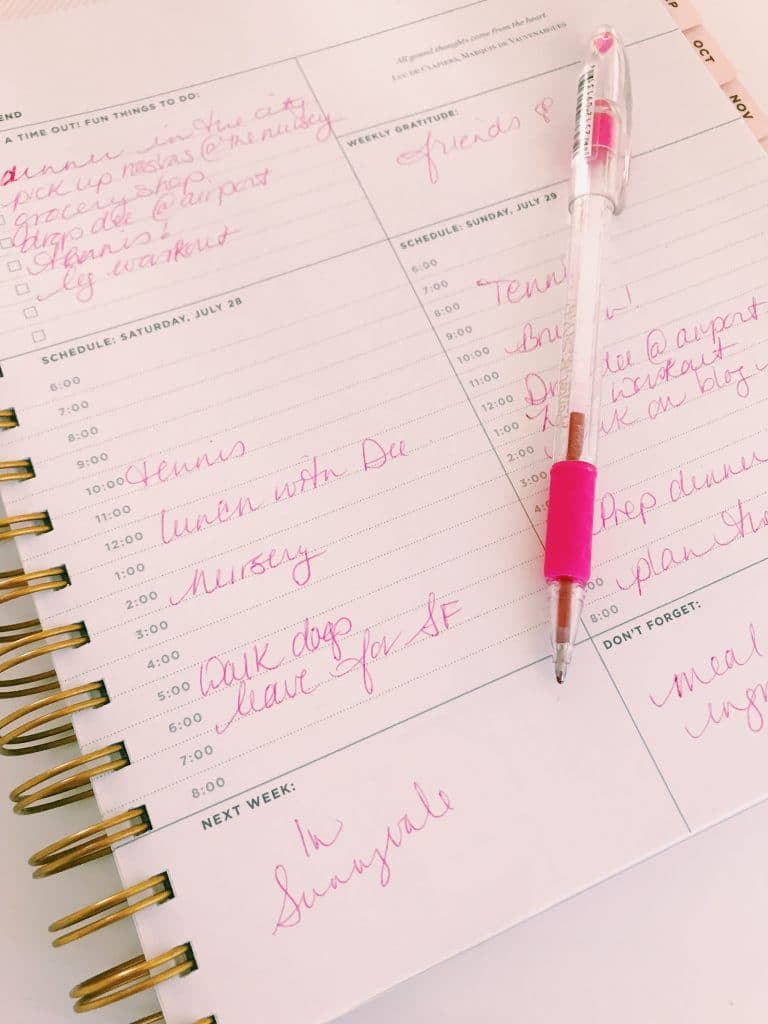 All grand thoughts come from the heart.
Luc de Clapiers, Marquis de Vauvenargues
P
OCT
NOV
END
A TIME OUT! FUN THINGS TO DO:
dinner in the city
pick up hostas @ the nursey
grocery shop
drop dee @ airport
tennis!
leg workout
WEEKLY GRATITUDE:
friends &
SCHEDULE: SATURDAY, JULY 28
6:00
7:00
8:00
9:00
10:00 tennis
11:00
12:00 lunch with Dee
1:00
2:00 nursery
3:00
4:00
5:00 Walk dogs
6:00 leave for SF
7:00
8:00
SCHEDULE: SUNDAY, JULY 29
6:00
7:00
8:00 Tenni
9:00
10:00
11:00
12:00 dee @ airport
1:00 workout
2:00 on blog
3:00
4:
Prep dinner
:00 plan
8:00
NEXT WEEK:
In
Sunnyvale
DON'T FORGET:
meal